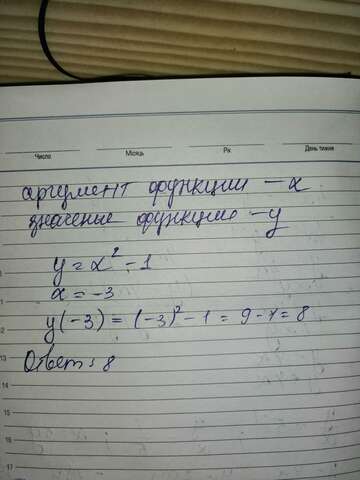 Число Місяць Рік День тижня
аргумент функции - x
значение функции - y
y = x² - 1
x = -3
y(-3) = (-3)² - 1 = 9 - 1 = 8
Ответ: 8
13
14
15
16
17